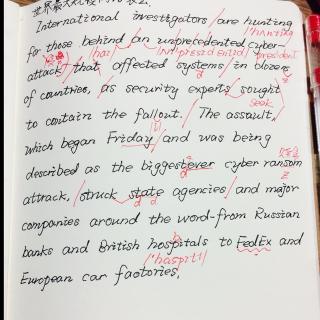 International investigators are hunting
for those behind an unprecedented cyber-
attack that affected systems in dozens
of countries, as security experts sought
seek
to contain the fallout. The assault,
which began Friday and was being
described as the biggest ever cyber ransom
attack, struck state agencies and major
companies around the word-from Russian
banks and British hospitals to FedEx and
European car factories.